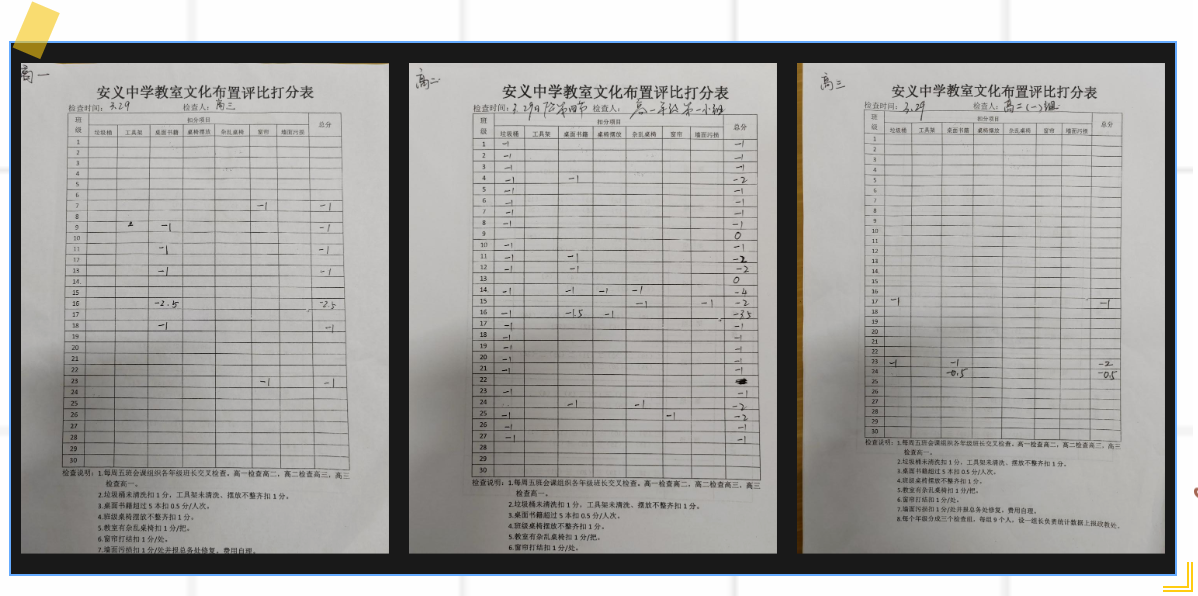 高一
安义中学教室文化布置评比打分表
检查时间：3.29 检查人：高三
班级 扣分项目 总分
垃圾桶 工具架 桌面书籍 桌椅摆放 杂乱桌椅 窗帘 墙面污损
1
2
3
4
5
6
7 -1 -1
8
9 -1 -1
10
11 -1 -1
12
13 -1 -1
14
15
16 -2.5 -2.5
17
18 -1 -1
19
20
21
22
23 -1 -1
24
25
26
27
28
29
30
检查说明：1.每周五班会课组织各年级班长交叉检查。高一检查高二，高二检查高三，高三
检查高一。
2.垃圾桶未清洗扣1分，工具架未清洗、摆放不整齐扣1分。
3.桌面书籍超过5本扣0.5分/人次。
4.班级桌椅摆放不整齐扣1分。
5.教室有杂乱桌椅扣1分/把。
6.窗帘打结扣1分/处。
7.墙面污损扣1分/处并报总务处修复，费用自理。
高二
安义中学教室文化布置评比打分表
检查时间：3.29 第四节 检查人：高一年级第一小组
班级 扣分项目 总分
垃圾桶 工具架 桌面书籍 桌椅摆放 杂乱桌椅 窗帘 墙面污损
1 -1 -1
2 -1 -1
3 -1 -1
4 -1 -1 -2
5 -1 -1
6 -1 -1
7 -1 -1
8 -1 -1
9 0
10 -1 -1
11 -1 -1 -2
12 -1 -1 -2
13 0
14 -1 -1 -1 -1 -4
15 -1 -1 -2
16 -1 -1.5 -1 -3.5
17 -1 -1
18 -1 -1
19 -1 -1
20 -1 -1
21 -1 -1
22
23 -1 -1
24 -1 -1 -2
25 -1 -1 -2
26 -1 -1
27 -1 -1
28
29
30
检查说明：1.每周五班会课组织各年级班长交叉检查。高一检查高二，高二检查高三，高三
检查高一。
2.垃圾桶未清洗扣1分，工具架未清洗、摆放不整齐扣1分。
3.桌面书籍超过5本扣0.5分/人次。
4.班级桌椅摆放不整齐扣1分。
5.教室有杂乱桌椅扣1分/把。
6.窗帘打结扣1分/处。
高三
安义中学教室文化布置评比打分表
检查时间：3.29 检查人：高二(一)组
班级 扣分项目 总分
垃圾桶 工具架 桌面书籍 桌椅摆放 杂乱桌椅 窗帘 墙面污损
1
2
3
4
5
6
7
8
9
10
11
12
13
14
15
16
17 -1 -1
18
19
20
21
22
23 -1 -1 -2
24 -0.5 -0.5
25
26
27
28
29
30
检查说明：1.每周五班会课组织各年级班长交叉检查。高一检查高二，高二检查高三，高三
检查高一。
2.垃圾桶未清洗扣1分，工具架未清洗、摆放不整齐扣1分。
3.桌面书籍超过5本扣0.5分/人次。
4.班级桌椅摆放不整齐扣1分。
5.教室有杂乱桌椅扣1分/把。
6.窗帘打结扣1分/处。
7.墙面污损扣1分/处并报总务处修复，费用自理。
8.每个年级分成三个检查组，每组9个人，设一组长负责统计数据上报政教处。